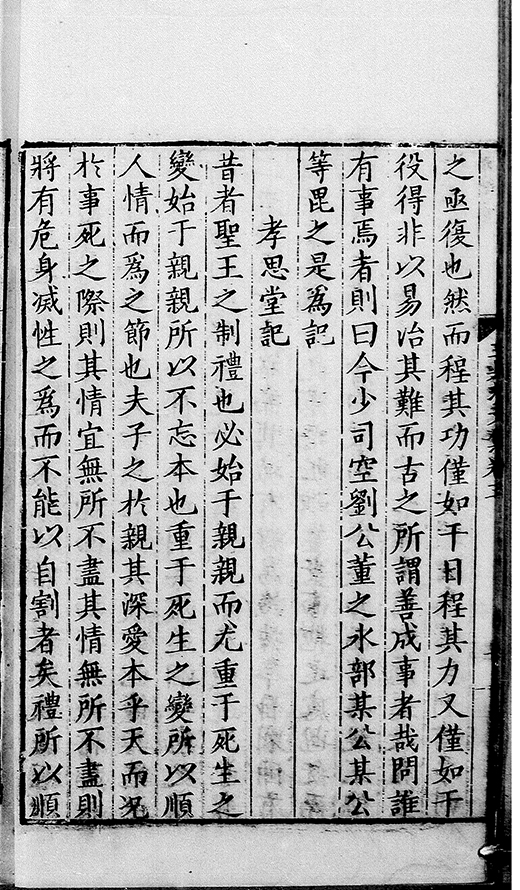 之亟復也然而程其功僅如干日程其力又僅如干
役得非以易治其難而古之所謂善成事者哉問誰
有事焉者則曰今少司空劉公董之水部某公某公
等毘之是爲記
孝思堂記
昔者聖王之制禮也必始于親親而尤重于死生之
變始于親親所以不忘本也重于死生之變所以順
人情而爲之節也夫子之於親其深愛本乎天而况
於事死之際則其情宜無所不盡其情無所不盡則
將有危身滅性之爲而不能以自割者矣禮所以順